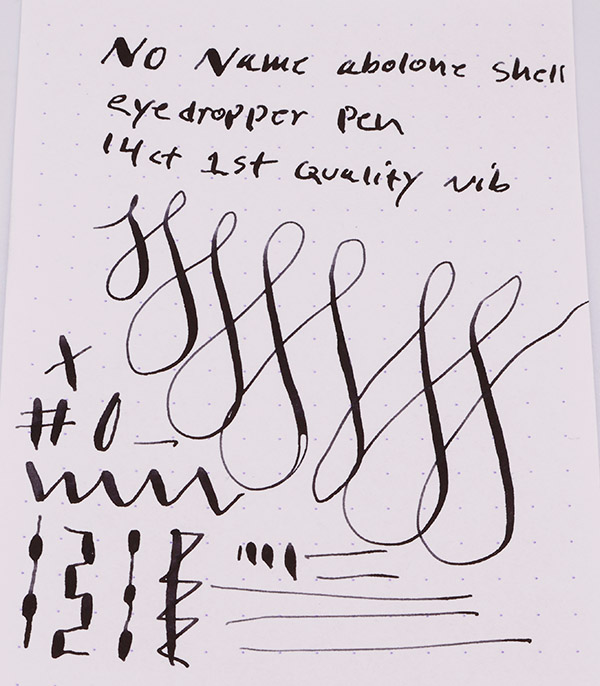 No Name abolone shell
eyedropper pen
14ct 1st Quality nib
x
# 0 _